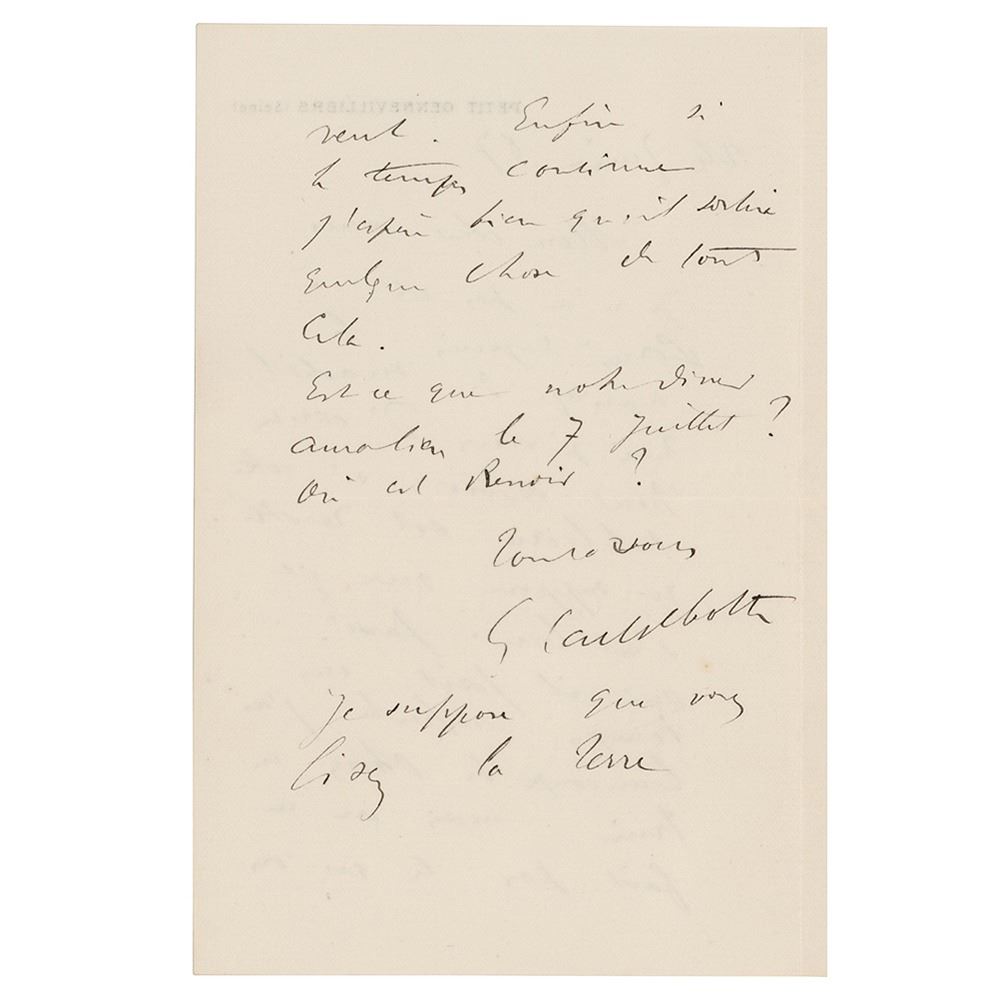 PETIT GENNEVILLIERS (Seine)
vent. Enfin si
le temps continue
j'espère bien qu'il sortira
quelque chose de tout
cela.
Est ce que notre diner
aura lieu le 7 Juillet ?
Où est Renoir ?
Tout à vous
G Caillebotte
Je suppose que vous
lisez la Terre